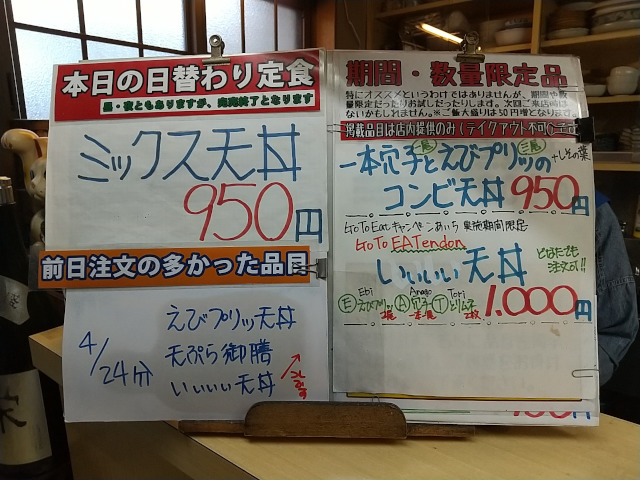 本日の日替わり定食
昼・夜ともありますが、完売終了となります
ミックス天丼
950円
前日注文の多かった品目
4/24分
えびプリッ天丼
天ぷら御膳
いいいい天丼
期間・数量限定品
特にオススメというわけではありませんが、期間や数
量限定だったりお試しだったりします。次回ご来店時は
ないかもしれません。※ご飯大盛りは50円増となります。
掲載品目は店内提供のみ(テイクアウト不可)
一本穴子とえびプリッの
+しその葉
コンビ天丼 950円
GoToEatキャンペーンあいち 実施期間限定
GoTo EATendon
いいいい天丼
どなたでも
注文OK!!
Ebi Anago Tori
Ⓔえびプリッ Ⓐ穴子 Ⓣとりム子
2尾 一本 2枚
1,000円